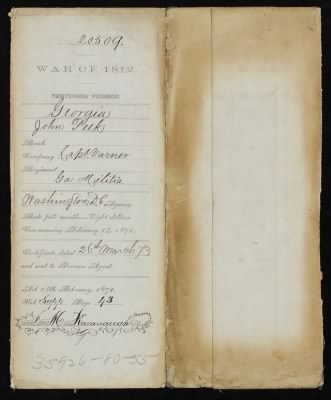 20509.
WAR OF 1812.
SURVIVOR'S PENSION
Georgia
John Peek
Rank
Company Capt. Varner
Regiment
Ga Militia
Washington D.C. Agency
Rate per month, Eight dollars
Commencing February 14, 1871.
Certificate dated 26th March 73
and sent to Pension Agent.
Act 14th February, 1871.
Vol. Supp. Page 43
M Kavanaugh
35926-80-55